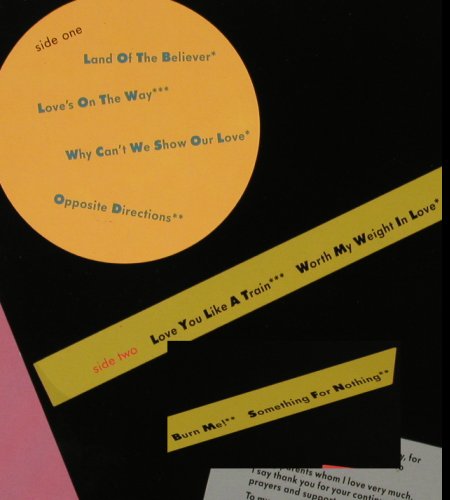 side one
Land Of The Believer*
Love's On The Way***
Why Can't We Show Our Love*
Opposite Directions**
side two Love You Like A Train*** Worth My Weight In Love*
Burn Me!** Something For Nothing**
for
parents whom I love very much.
I say thank you for your contin
prayers and support
To my